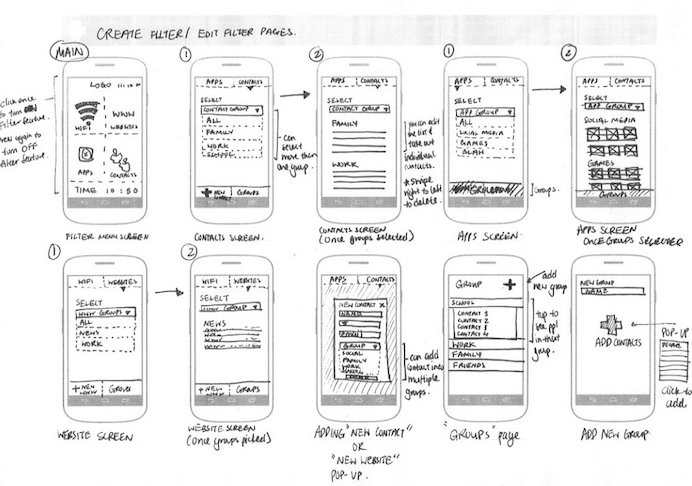 CREATE FILTER/ EDIT FILTER PAGES.
MAIN
click once
to turn ON
Filter feature.
again to
turn OFF
filter feature.
LOGO
WIFI
WWW
WEBSITES
APPS
CONTACTS
TIME 10:50
FILTER MENU SCREEN
1
APPS CONTACTS
SELECT
CONTACT GROUP
ALL
FAMILY
WORK
SCHOOL
+ NEW CONTACT
GROUPS
can
select
more than
one group.
CONTACTS SCREEN.
2
APPS CONTACTS
SELECT
CONTACT GROUP
FAMILY
WORK
you can edit
the list &
take out
individual
contacts.
* swipe
right to left
to delete.
CONTACTS SCREEN
(Once groups selected)
1
APPS CONTACTS
SELECT
APP GROUP
ALL
SOCIAL MEDIA
GAMES
BLAH
Groups.
APPS SCREEN
2
APPS CONTACTS
SELECT
APP GROUP
SOCIAL MEDIA
GAMES
GROUPS
APPS SCREEN
ONCE GROUPS SELECTED
1
WIFI WEBSITES
SELECT
WWW GROUPS
ALL
NEWS
WORK
+ NEW WWW
GROUPS
WEBSITE SCREEN
2
WIFI WEBSITES
SELECT
WWW GROUP
NEWS
WORK
+ NEW WWW
GROUPS
WEBSITE SCREEN
(once groups picked)
APPS CONTACTS
NEW CONTACT X
NAME
EMAIL
GROUP
SOCIAL
FAMILY
WORK
can add
contact into
multiple
groups.
ADDING "NEW CONTACT"
OR
"NEW WEBSITE"
POP-UP.
GROUP +
add
new group
SCHOOL
CONTACT 1
CONTACT 2
CONTACT 3
CONTACT 4
WORK
FAMILY
FRIENDS
tap to
see ppl
in that
group.
"GROUPS" page
NEW GROUP
NAME
ADD CONTACTS
POP-UP
click to
add
ADD NEW GROUP